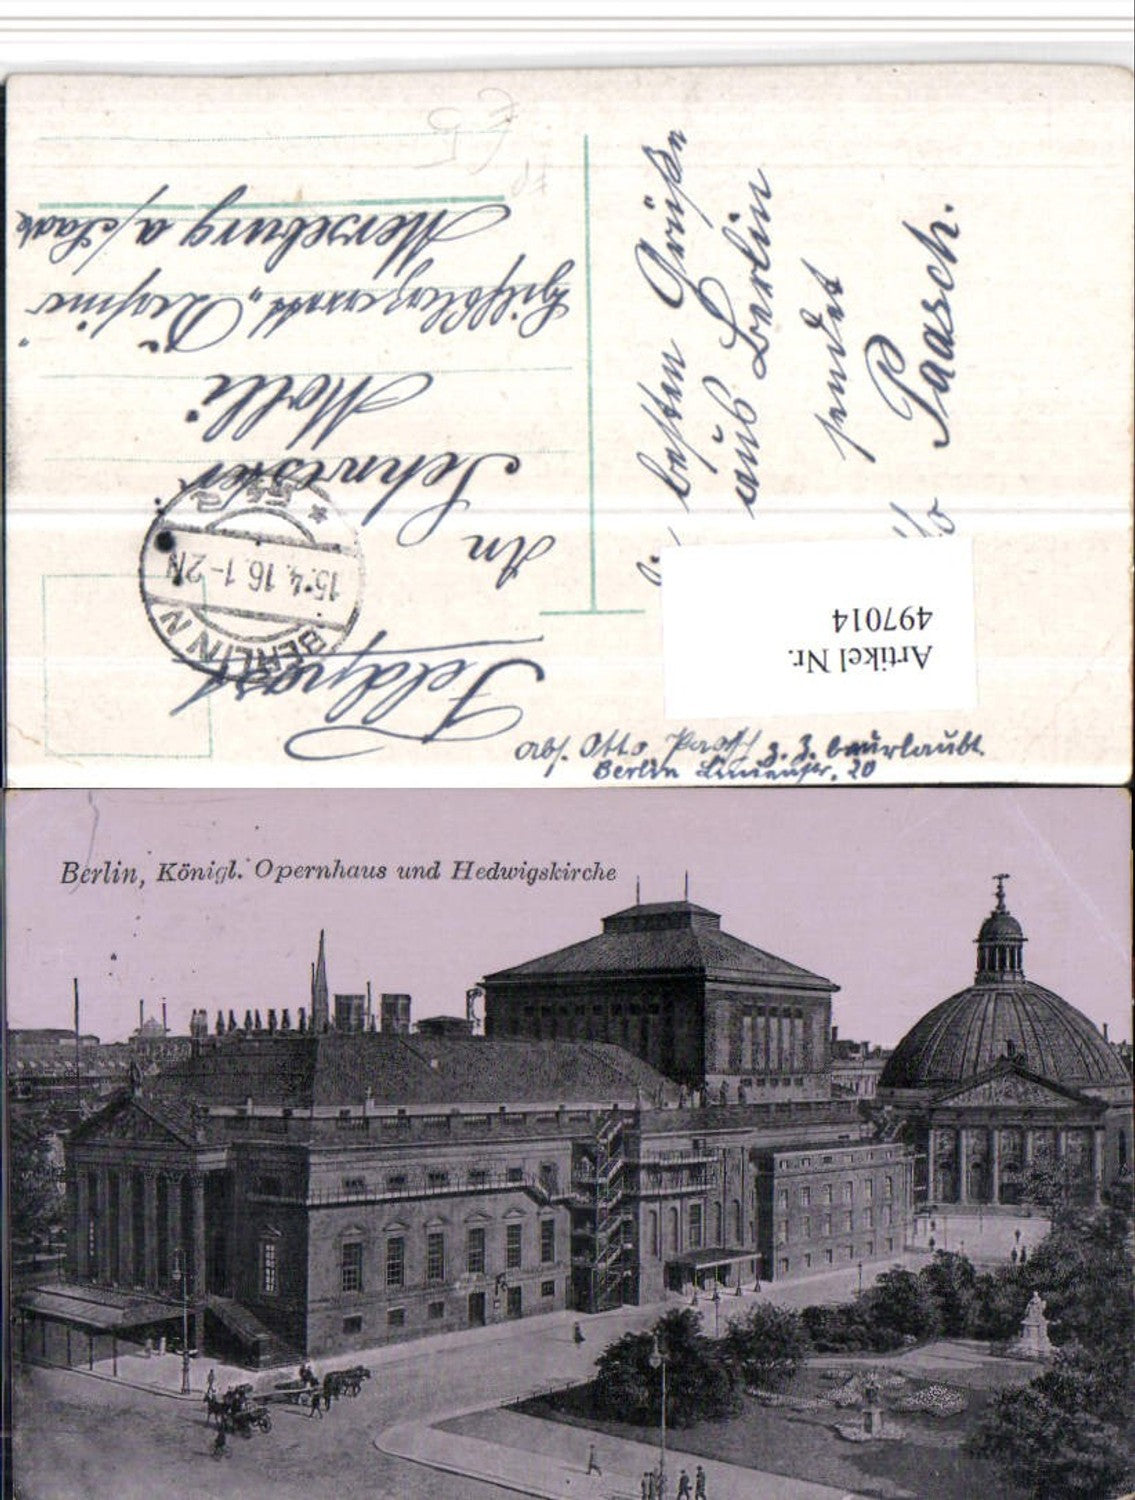 Abs. Otto Paasch z. Z. beurlaubt
Berlin Linienstr. 20
Feldpost
BERLIN N
15.4.16.1-2N
* 54 a
An
Schwester
Molli
Hilfslazarett „Reichskrone"
Merseburg a/Saale
besten Grüße
aus Berlin
sendet
Paasch.
Artikel Nr.
497014
Berlin, Königl. Opernhaus und Hedwigskirche